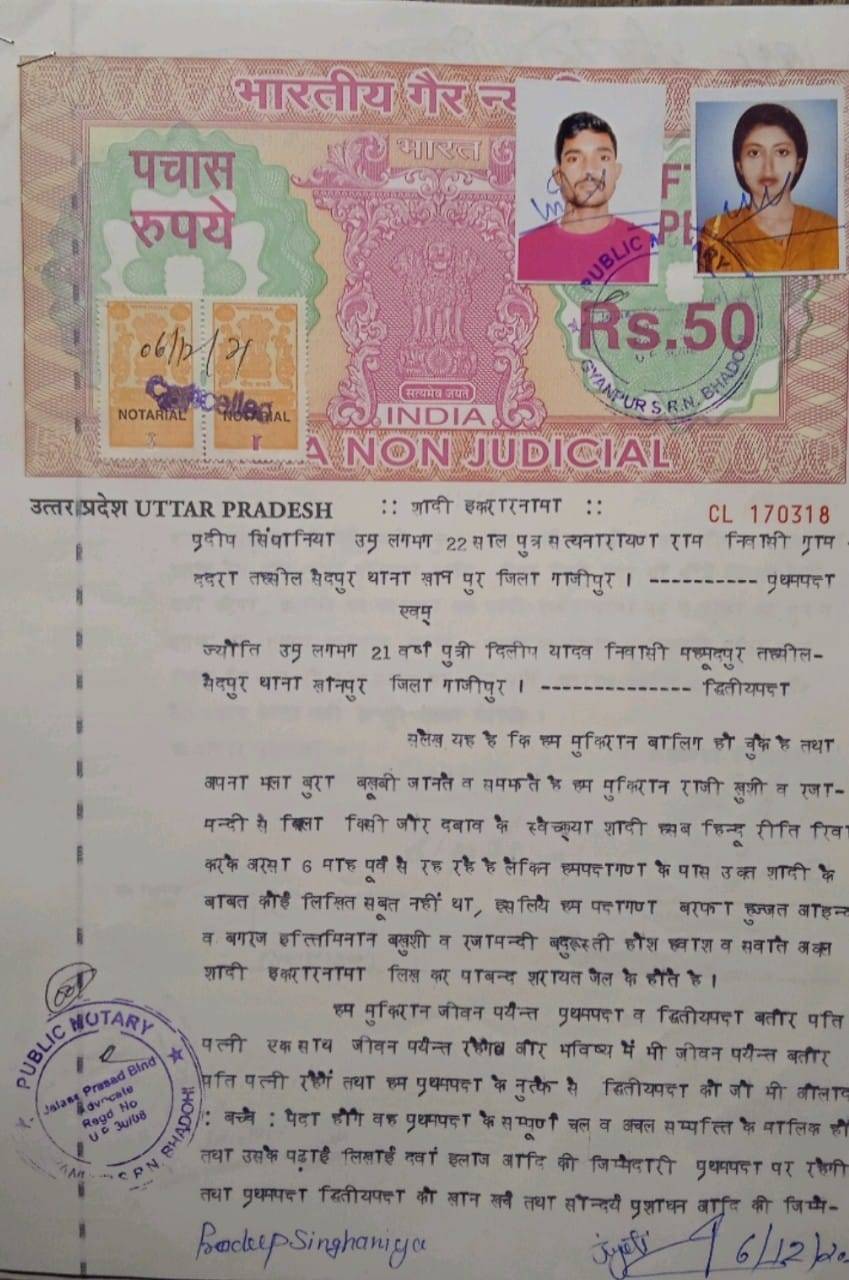 भारतीय गैर न्य
भारत
पचास
रुपये
Rs.50
सत्यमेव जयते
INDIA
NON JUDICIAL
06/12/21
Cancelled
NOTARIAL NOTARIAL
PUBLIC NOTARY
GYANPUR S.R.N. BHADOHI
उत्तर प्रदेश UTTAR PRADESH
:: शादी इकरारनामा ::
CL 170318
प्रदीप सिंघानिया उम्र लगभग 22 साल पुत्र सत्यनारायण राम निवासी ग्राम
ददरा तहसील सैदपुर थाना खान पुर जिला गाजीपुर । ---------- प्रथमपक्ष
एवम्
ज्योति उम्र लगभग 21 वर्ष पुत्री दिलीप यादव निवासी मह्मूदपुर तहसील-
सैदपुर थाना खानपुर जिला गाजीपुर । -------------- द्वितीयपक्ष
सलेख यह है कि हम मुकिरान बालिग हो चुके है तथा
अपना भला बुरा बखूबी जानते व समझते है हम मुकिरान राजी खुशी व रजा-
मन्दी से बिला किसी जोर दबाव के स्वेच्छया शादी हसब हिन्दू रीति रिवा
करके अरसा 6 माह पूर्व से रह रहे है लेकिन हमपक्षगण के पास उक्त शादी के
बाबत कोई लिखित सबूत नहीं था, इसलिये हम पक्षगण बरफा हुज्जत आइन्द
व बगरज इत्तिमिनान बखुशी व रजामन्दी बदुरूस्ती होश हवाश व सवाते अक्ल
शादी इकरारनामा लिख कर पाबन्द शरायत जैल के होते है ।
हम मुकिरान जीवन पर्यन्त प्रथमपक्ष व द्वितीयपक्ष बतौर पति
पत्नी एक साथ जीवन पर्यन्त रहेंगे और भविष्य में भी जीवन पर्यन्त बतौर
पति पत्नी रहेंगें तथा हम प्रथमपक्ष के नुत्फे से द्वितीयपक्ष को जो भी औलाद
: बच्चे : पैदा होंगे वह प्रथमपक्ष के सम्पूर्ण चल व अचल सम्पत्ति के मालिक हों
तथा उसके पढ़ाई लिखाई दवा इलाज आदि की जिम्मेदारी प्रथमपक्ष पर रहेगी
तथा प्रथमपक्ष द्वितीयपक्ष को खान खर्च तथा सौन्दर्य प्रशाधन आदि की जिम्मे-
PUBLIC NOTARY
Jalaas Prasad Bind
Advocate
Regd No
U P 30/08
S.R.N. BHADOHI
Pradeep Singhaniya
Jyoti
6/12/20